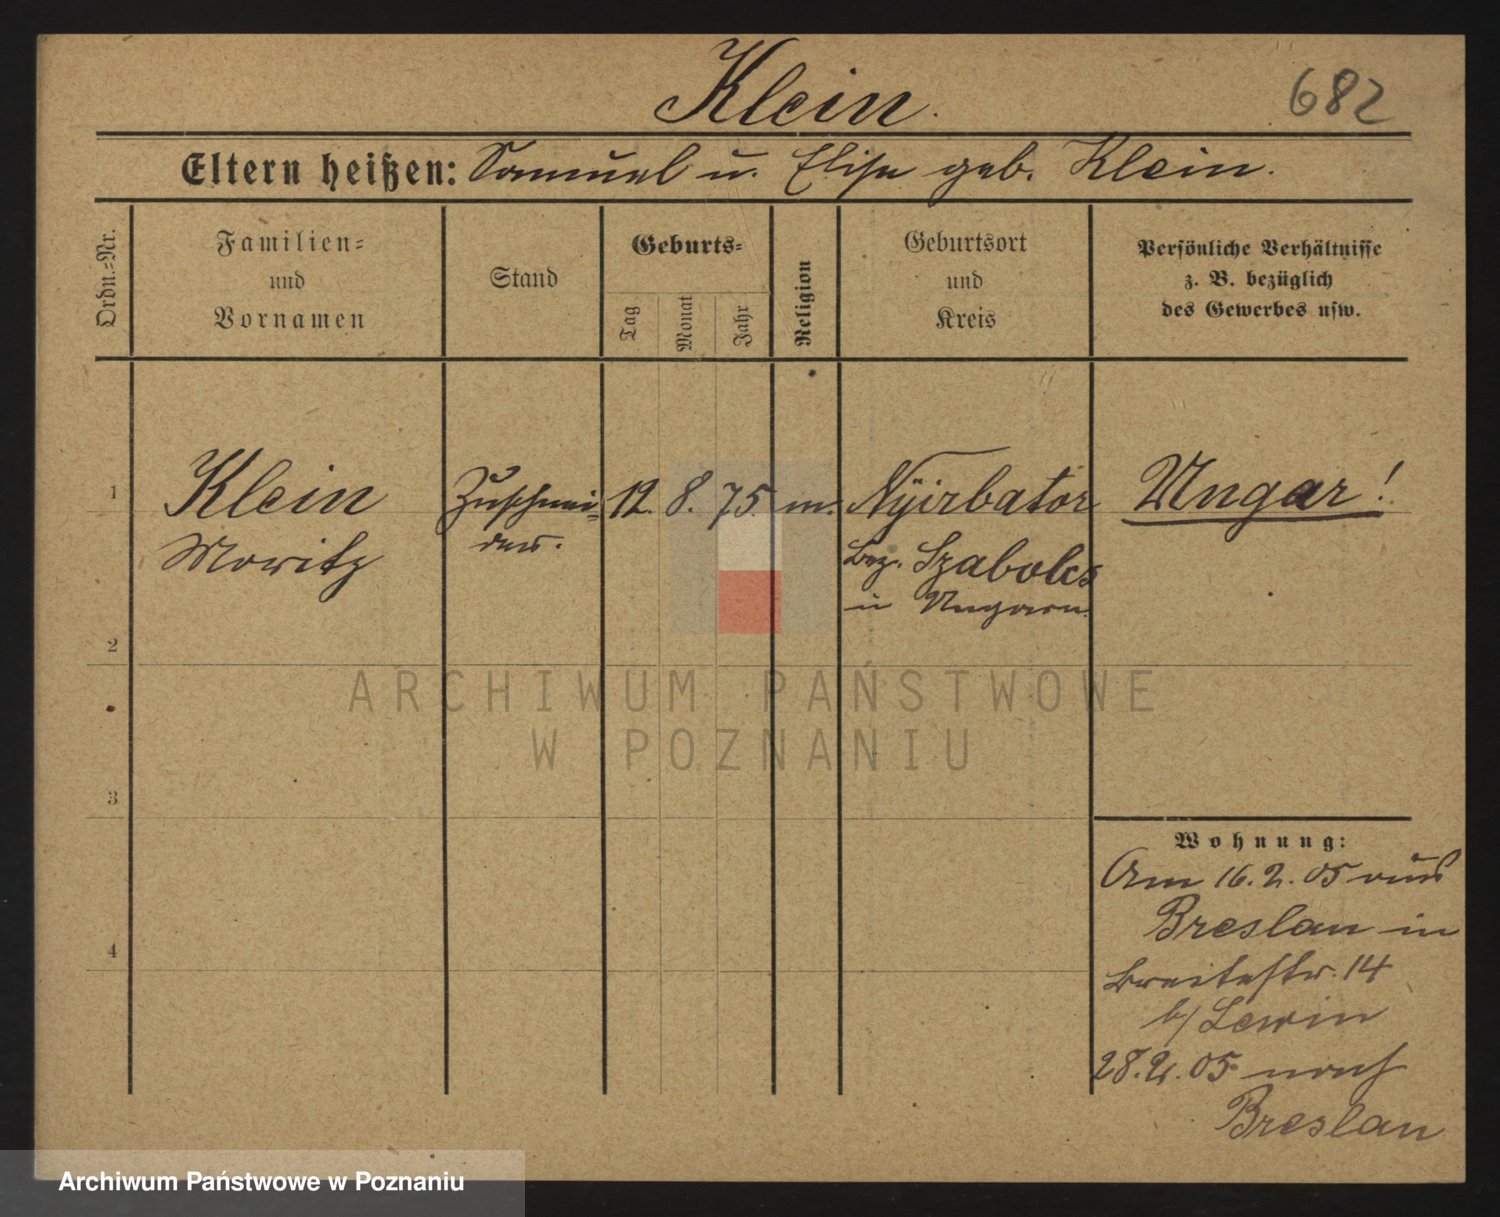 Klein.
682
Eltern heißen: Samuel u. Elise geb. Klein.
Ordn.=Nr.
Familien=
und
Vornamen
Stand
Geburts=
Tag
Monat
Jahr
Religion
Geburtsort
und
Kreis
Persönliche Verhältnisse
z. B. bezüglich
des Gewerbes usw.
1
Klein
Moritz
Zuschnei=
der.
12. 8. 75. m.
Nyirbator
Bez. Szabolcs
in Ungarn.
Ungar!
2
3
4
ARCHIWUM PAŃSTWOWE
W POZNANIU
Wohnung:
Am 16.2.05 aus
Breslau in
Breitestr. 14
b/ Lewin
28.2.05 nach
Breslau
Archiwum Państwowe w Poznaniu